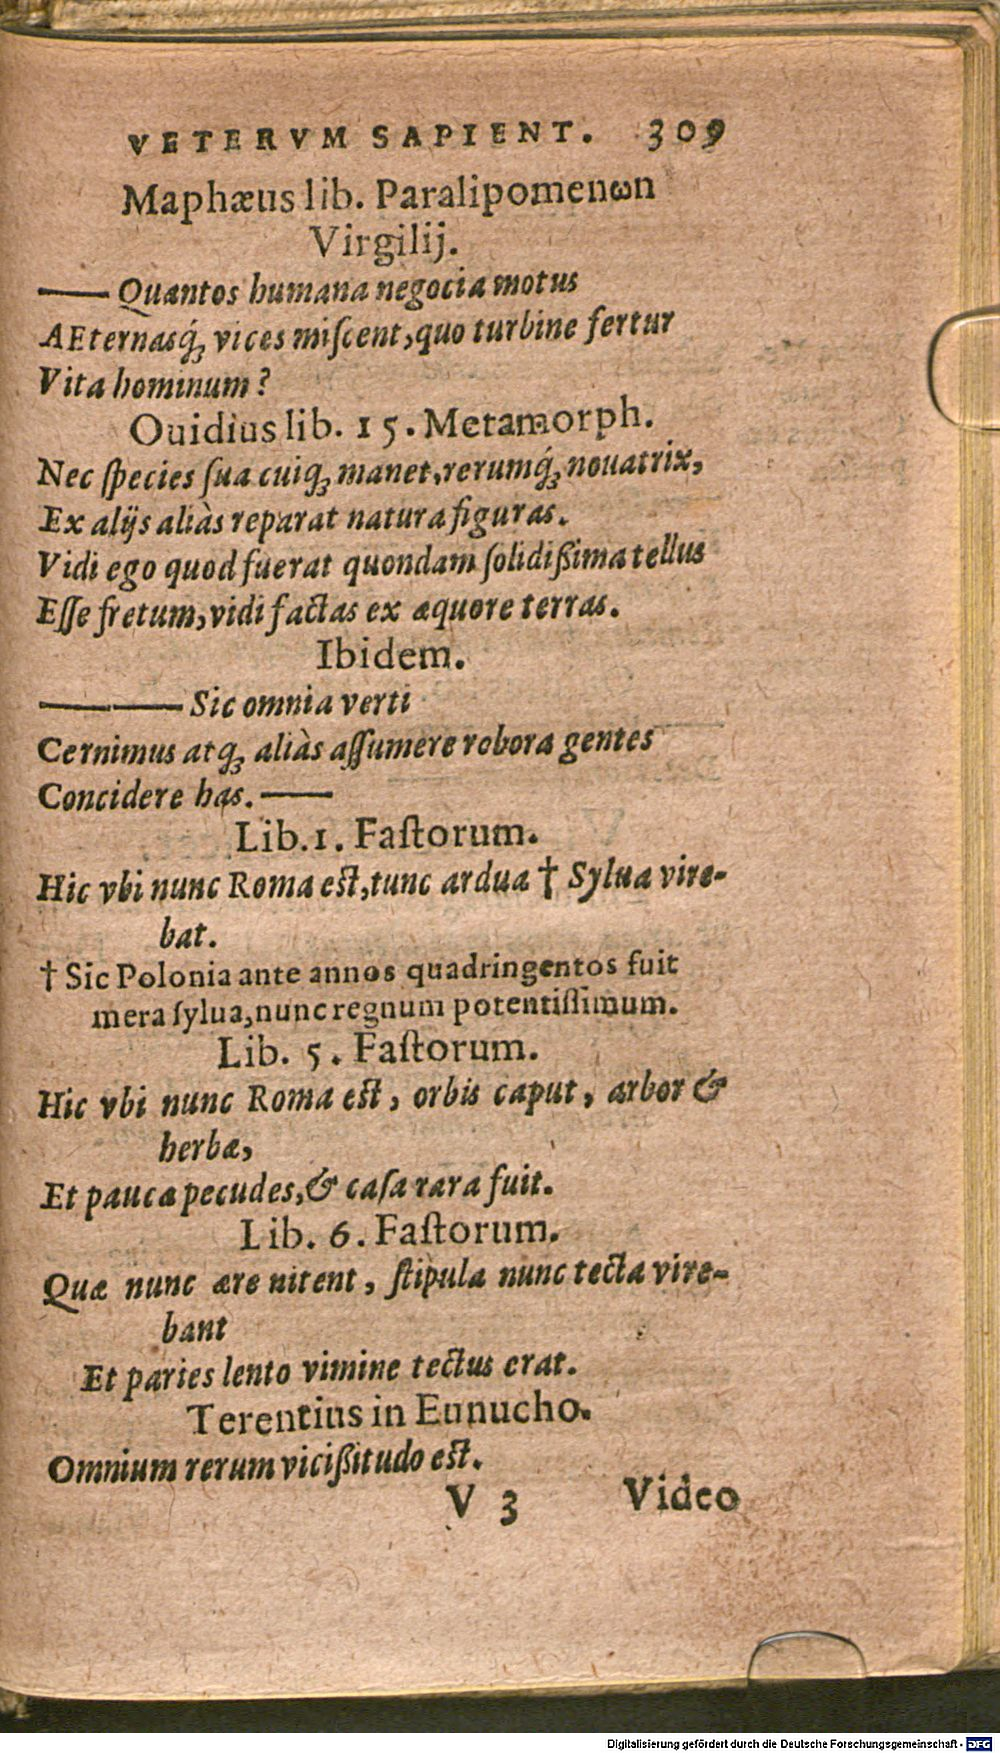 VETERVM SAPIENT. 309
Maphæus lib. Paralipomenωn
Virgilij.
—— Quantos humana negocia motus
AEternasq́ꝫ vices miſcent, quo turbine fertur
Vita hominum?
Ouidius lib. 15. Metamorph.
Nec ſpecies ſua cuiqꝫ manet, rerumq́ꝫ nouatrix,
Ex alijs aliàs reparat natura figuras.
Vidi ego quod fuerat quondam ſolidißima tellus
Eſſe fretum, vidi factas ex æquore terras.
Ibidem.
———— Sic omnia verti
Cernimus atqꝫ aliàs aſſumere robora gentes
Concidere has. ——
Lib. 1. Faſtorum.
Hic vbi nunc Roma eſt, tunc ardua † Sylua vire-
bat.
† Sic Polonia ante annos quadringentos fuit
mera ſylua, nunc regnum potentiſſimum.
Lib. 5. Faſtorum.
Hic vbi nunc Roma eſt, orbis caput, arbor &
herbæ,
Et pauca pecudes, & caſa rara fuit.
Lib. 6. Faſtorum.
Quæ nunc ære nitent, ſtipula nunc tecta vire-
bant
Et paries lento vimine tectus erat.
Terentius in Eunucho.
Omnium rerum vicißitudo eſt.
V 3 Video
Digitalisierung gefördert durch die Deutsche Forschungsgemeinschaft - DFG